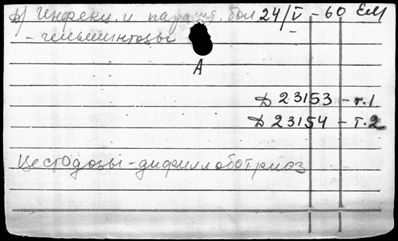 Д) Инфекц. и параз. бол 24/V - 60 ЕМ
- гельминтозы
А
Д 23153 - т.1
Д 23154 - т.2
Цестодозы - дифиллоботриоз